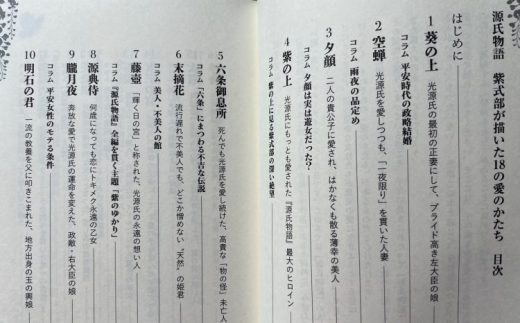 源氏物語 紫式部が描いた18の愛のかたち 目次
はじめに
1 葵の上 光源氏の最初の正妻にして、プライド高き左大臣の娘
コラム 平安時代の政略結婚
2 空蟬 光源氏を愛しつつも、「一夜限り」を貫いた人妻
コラム 雨夜の品定め
3 夕顔 二人の貴公子に愛され、はかなくも散る薄幸の美人
コラム 夕顔は実は遊女だった?
4 紫の上 光源氏にもっとも愛された『源氏物語』最大のヒロイン
コラム 紫の上に見る紫式部の深い絶望
5 六条御息所 死んでも光源氏を愛し続けた、高貴な「物の怪」未亡人
コラム 「六条」にまつわる不吉な伝説
6 末摘花 流行遅れで不美人でも、どこか憎めない“天然”の姫君
コラム 美人・不美人の館
7 藤壺 「輝く日の宮」と称された、光源氏の永遠の想い人
コラム 『源氏物語』全編を貫く主題「紫のゆかり」
8 源典侍 何歳になっても恋にトキメク永遠の乙女
9 朧月夜 奔放な愛で光源氏の運命を変えた、政敵・右大臣の娘
コラム 平安女性のモテる条件
10 明石の君 一流の教養を父に叩きこまれた、地方出身の玉の輿娘